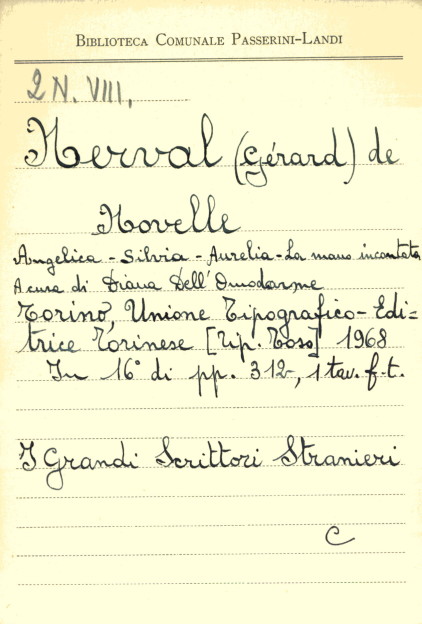 BIBLIOTECA COMUNALE PASSERINI-LANDI
2 N. VIII.
Nerval (Gérard) de
Novelle
Angelica - Silvia - Aurelia - La mano incantata
A cura di Diana Dell'Omodarme
Torino, Unione Tipografico-Edi=
trice Torinese [Tip. Toso] 1968
In 16° di pp. 312, 1 tav. f.t.
I Grandi Scrittori Stranieri
C